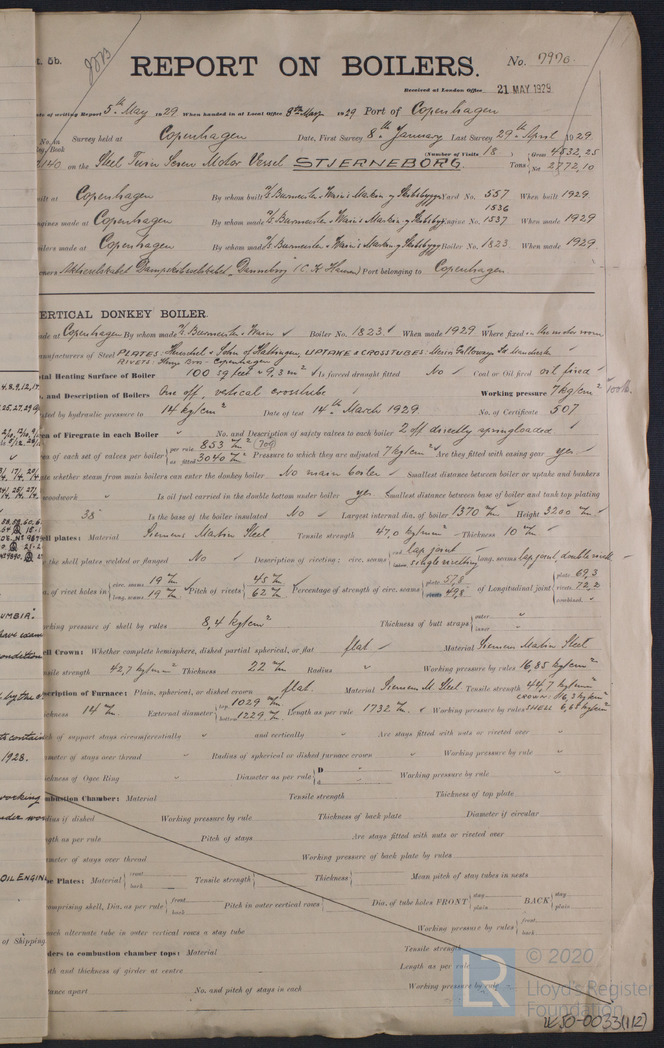 t. 5b.
REPORT ON BOILERS.
No. 7976.
Received at London Office 21 MAY 1929
te of writing Report 5th May 1929 When handed in at Local Office 8th May 1929 Port of Copenhagen
No. in Survey held at Copenhagen Date, First Survey 8th January Last Survey 29th April 1929
Reg. Book (Number of Visits 18) Gross 4832,25
on the Steel Twin Screw Motor Vessel STJERNEBORG. Tons Net 2772,10
ilt at Copenhagen By whom built Burmeister & Wain's Yard No. 557 When built 1929
1536
ngines made at Copenhagen By whom made Burmeister & Wain's Engine No. 1537 When made 1929
oilers made at Copenhagen By whom made Burmeister & Wain's Boiler No. 1823 When made 1929
ners Aktieselskabet Dampskibsselskabet Danneborg (C. K. Hansen) Port belonging to Copenhagen
ERTICAL DONKEY BOILER.
ade at Copenhagen By whom made Burmeister & Wain Boiler No. 1823 When made 1929 Where fixed in the motor room
anufacturers of Steel PLATES: Henschel & Sohn of Hattingen, UPTAKE & CROSSTUBES:
RIVETS: Copenhagen
tal Heating Surface of Boiler 100 sq feet = 9,3 m² Is forced draught fitted No Coal or Oil fired oil fired
. and Description of Boilers One off, vertical crosstube Working pressure 7 kg/cm² 100 lb.
ted by hydraulic pressure to 14 kg/cm² Date of test 14th March 1929 No. of Certificate 507
ea of Firegrate in each Boiler " No. and Description of safety valves to each boiler 2 off directly springloaded
ea of each set of valves per boiler per rule 853 as fitted 3040 Pressure to which they are adjusted 7 kg/cm² Are they fitted with easing gear yes
ate whether steam from main boilers can enter the donkey boiler No main boiler Smallest distance between boiler or uptake and bunkers
woodwork " Is oil fuel carried in the double bottom under boiler yes Smallest distance between base of boiler and tank top plating
38 Is the base of the boiler insulated No Largest internal dia. of boiler 1370 Height 3200
ell plates: Material Siemens Martin Steel Tensile strength 47,0 kg/mm² Thickness 10
e the shell plates welded or flanged No Description of riveting: circ. seams lap joint single rivetting long. seams lap joint, double rivett
a. of rivet holes in circ. seams 19 long. seams 19 Pitch of rivets 45 62 Percentage of strength of circ. seams plate 57,8 rivets 49,8 of Longitudinal joint plate 69,3 rivets 72,2 combined "
rking pressure of shell by rules 8,4 kg/cm² Thickness of butt straps outer " inner "
ell Crown: Whether complete hemisphere, dished partial spherical, or flat flat Material Siemens Martin Steel
nsile strength 42,7 kg/mm² Thickness 22 Radius " Working pressure by rules 16,35 kg/cm²
scription of Furnace: Plain, spherical, or dished crown flat. Material Siemens M. Steel Tensile strength 44,7 kg/mm²
ickness 14 External diameter top 1029 bottom 1229 Length as per rule 1732 Working pressure by rules CROWN: SHELL
ch of support stays circumferentially " and vertically " Are stays fitted with nuts or riveted over "
ameter of stays over thread " Radius of spherical or dished furnace crown " Working pressure by rule "
ickness of Ogee Ring " Diameter as per rule D " d " Working pressure by rule "
mbustion Chamber: Material Tensile strength Thickness of top plate
dius if dished Working pressure by rule Thickness of back plate Diameter if circular
ngth as per rule Pitch of stays Are stays fitted with nuts or riveted over
ameter of stays over thread Working pressure of back plate by rules
be Plates: Material front back Tensile strength Thickness Mean pitch of stay tubes in nests
omprising shell, Dia. as per rule front back Pitch in outer vertical rows Dia. of tube holes FRONT stay plain BACK stay plain
each alternate tube in outer vertical rows a stay tube Working pressure by rules front back
rders to combustion chamber tops: Material Tensile strength
pth and thickness of girder at centre Length as per rule
stance apart No. and pitch of stays in each Working pressure by rule
UMBIA".
have exam
condition
1928.
working
OIL ENGIN
of Shipping
© 2020
LR
Lloyd's Register
Foundation
W50-0033(1/2)